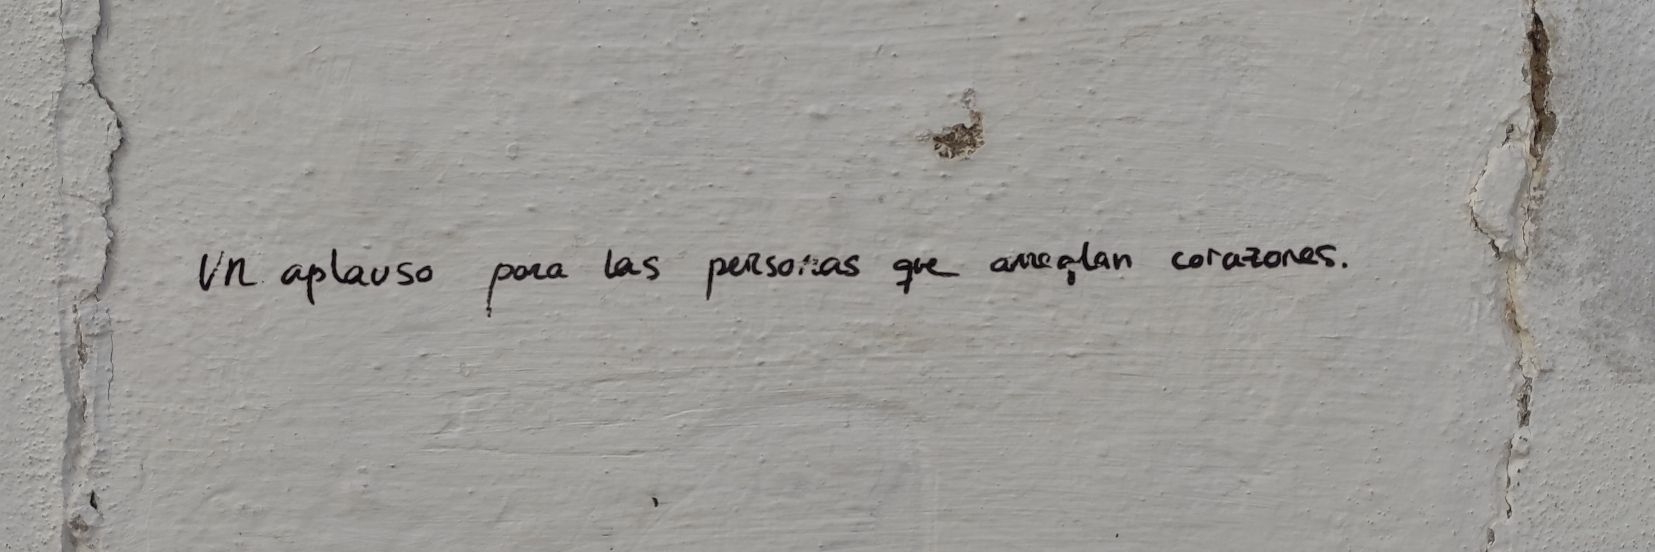 Un aplauso para las personas que arreglan corazones.